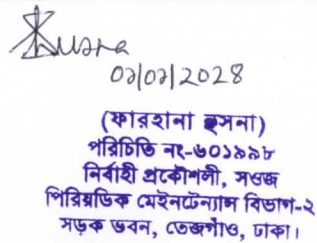 Husna
০১/০১/২০২৪
(ফারহানা হুসনা)
পরিচিতি নং-৬০১৯৯৮
নির্বাহী প্রকৌশলী, সওজ
পিরিয়ডিক মেইনটেন্যান্স বিভাগ-২
সড়ক ভবন, তেজগাঁও, ঢাকা।